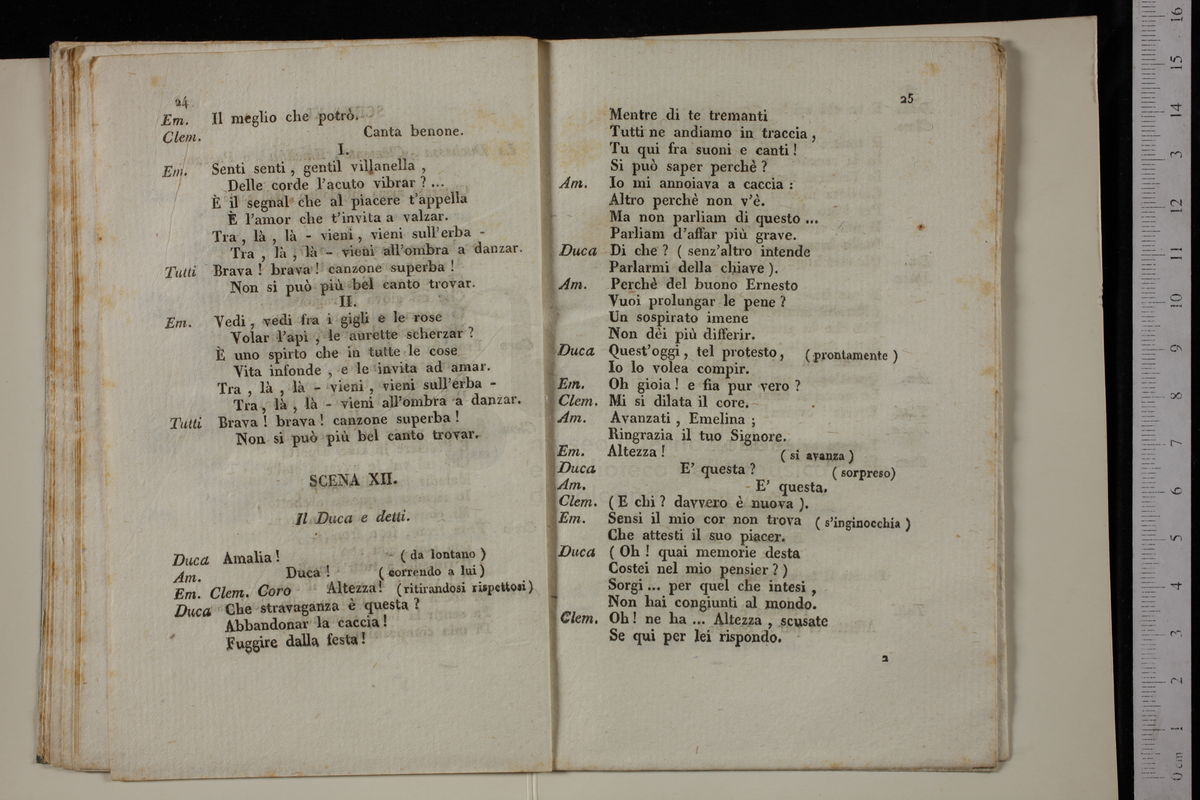 24
Em. Il meglio che potrò.
Clem. Canta benone.
I.
Em. Senti senti , gentil villanella ,
Delle corde l'acuto vibrar ? ...
È il segnal che al piacere t'appella
È l'amor che t'invita a valzar.
Tra , là , là - vieni , vieni sull'erba -
Tra , là , là - vieni all'ombra a danzar.
Tutti Brava ! brava ! canzone superba !
Non si può più bel canto trovar.
II.
Em. Vedi , vedi fra i gigli e le rose
Volar l'api , le aurette scherzar ?
È uno spirto che in tutte le cose
Vita infonde , e le invita ad amar.
Tra , là , là - vieni , vieni sull'erba -
Tra , là , là - vieni all'ombra a danzar.
Tutti Brava ! brava ! canzone superba !
Non si può più bel canto trovar.
SCENA XII.
Il Duca e detti.
Duca Amalia ! ( da lontano )
Am. Duca ! ( correndo a lui )
Em. Clem. Coro Altezza ! (ritirandosi rispettosi)
Duca Che stravaganza è questa ?
Abbandonar la caccia !
Fuggire dalla festa !
25
Mentre di te tremanti
Tutti ne andiamo in traccia ,
Tu qui fra suoni e canti !
Si può saper perchè ?
Am. Io mi annoiava a caccia :
Altro perchè non v'è.
Ma non parliam di questo ...
Parliam d'affar più grave.
Duca Di che ? ( senz'altro intende
Parlarmi della chiave ).
Am. Perchè del buono Ernesto
Vuoi prolungar le pene ?
Un sospirato imene
Non dèi più differir.
Duca Quest'oggi , tel protesto , ( prontamente )
Io lo volea compir.
Em. Oh gioia ! e fia pur vero ?
Clem. Mi si dilata il core.
Am. Avanzati , Emelina ;
Ringrazia il tuo Signore.
Em. Altezza ! ( si avanza )
Duca E' questa ? ( sorpreso)
Am. E' questa.
Clem. ( E chi ? davvero è nuova ).
Em. Sensi il mio cor non trova ( s'inginocchia )
Che attesti il suo piacer.
Duca ( Oh ! quai memorie desta
Costei nel mio pensier ? )
Sorgi ... per quel che intesi ,
Non hai congiunti al mondo.
Clem. Oh ! ne ha ... Altezza , scusate
Se qui per lei rispondo.
2
16
15
14
13
12
11
10
9
8
7
6
5
4
3
2
1
0 cm